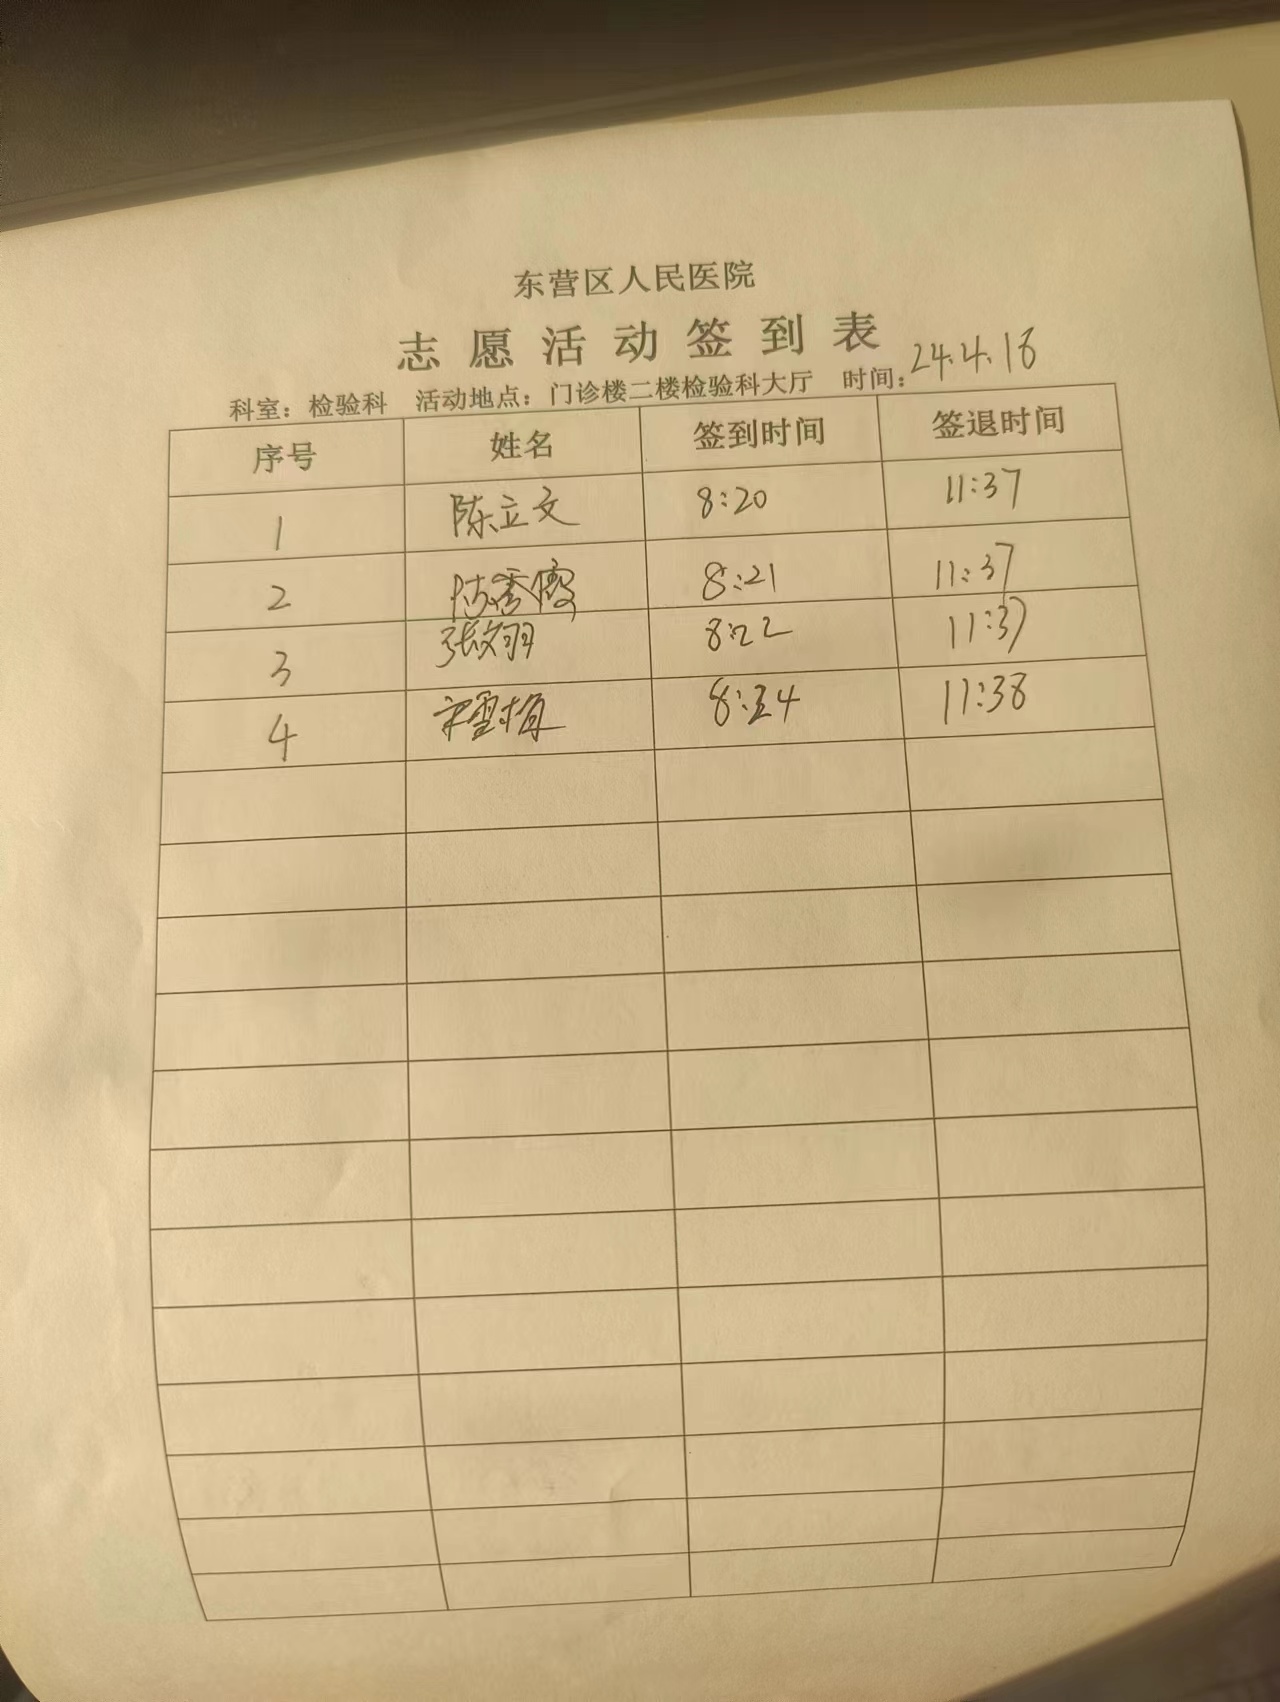 东营区人民医院
志愿活动签到表
科室：检验科 活动地点：门诊楼二楼检验科大厅 时间：24.4.18
序号 姓名 签到时间 签退时间
1 陈立文 8:20 11:37
2 陈秀霞 8:21 11:37
3 张文羽 8:22 11:37
4 宋雪梅 8:24 11:38